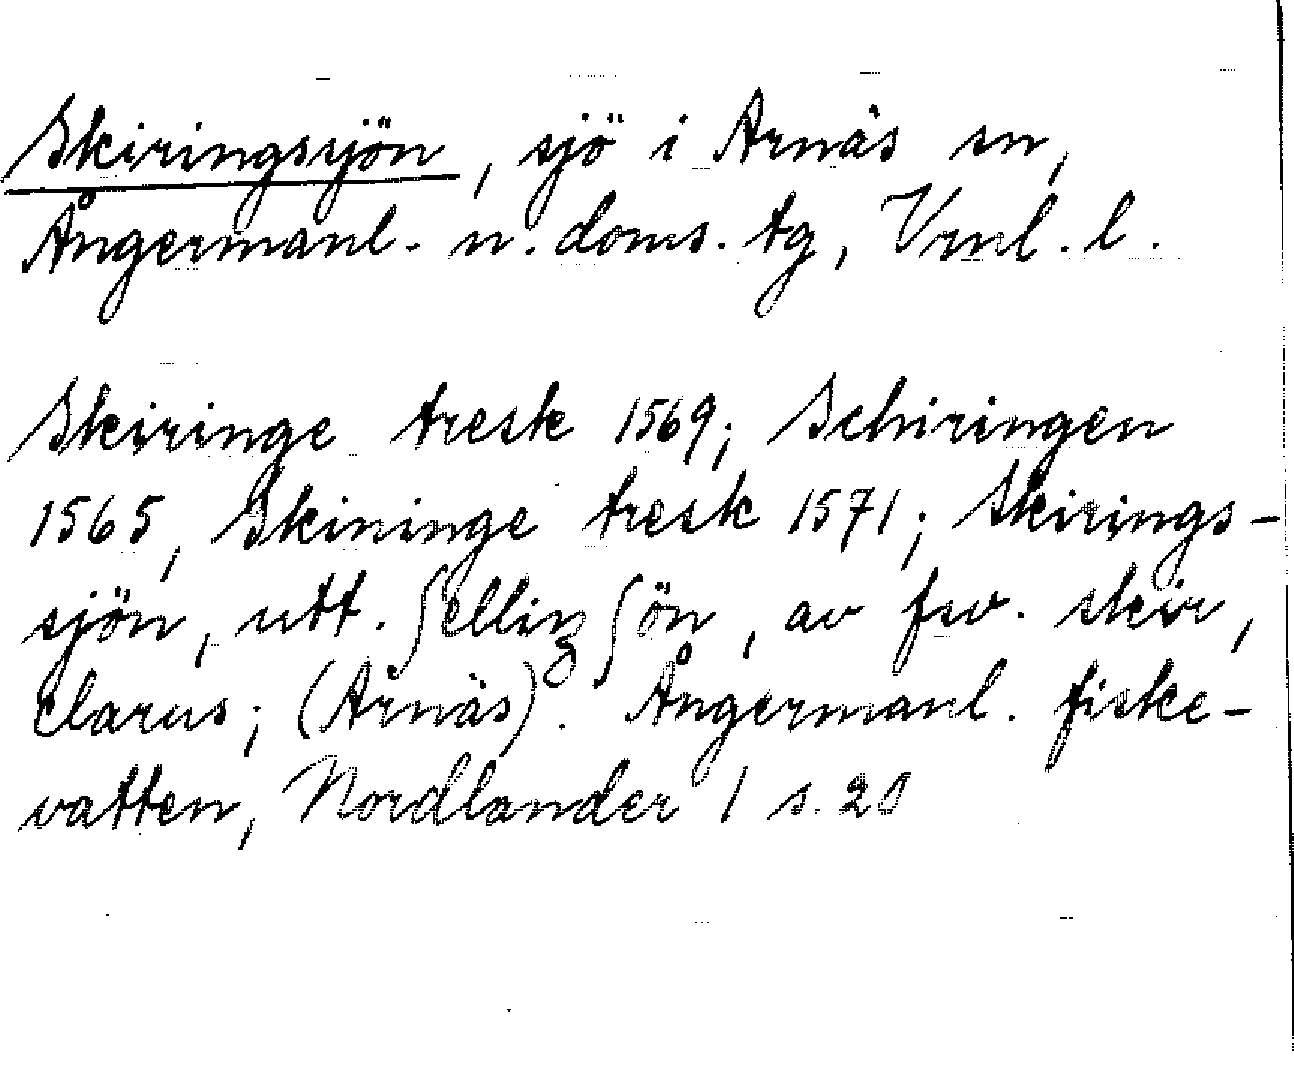 Skiringssjön, sjö i Arnäs sn,
Ångermanl. n. doms. tg, Vrnl. l.
Skiringe tresk 1569; Schiringen
1565, Skininge tresk 1571; Skirings-
sjön, utt. ʃelliŋʃön, av fsv. skir,
clarus; (Arnäs). Ångermanl. fiske-
vatten, Nordlander 1 s. 20